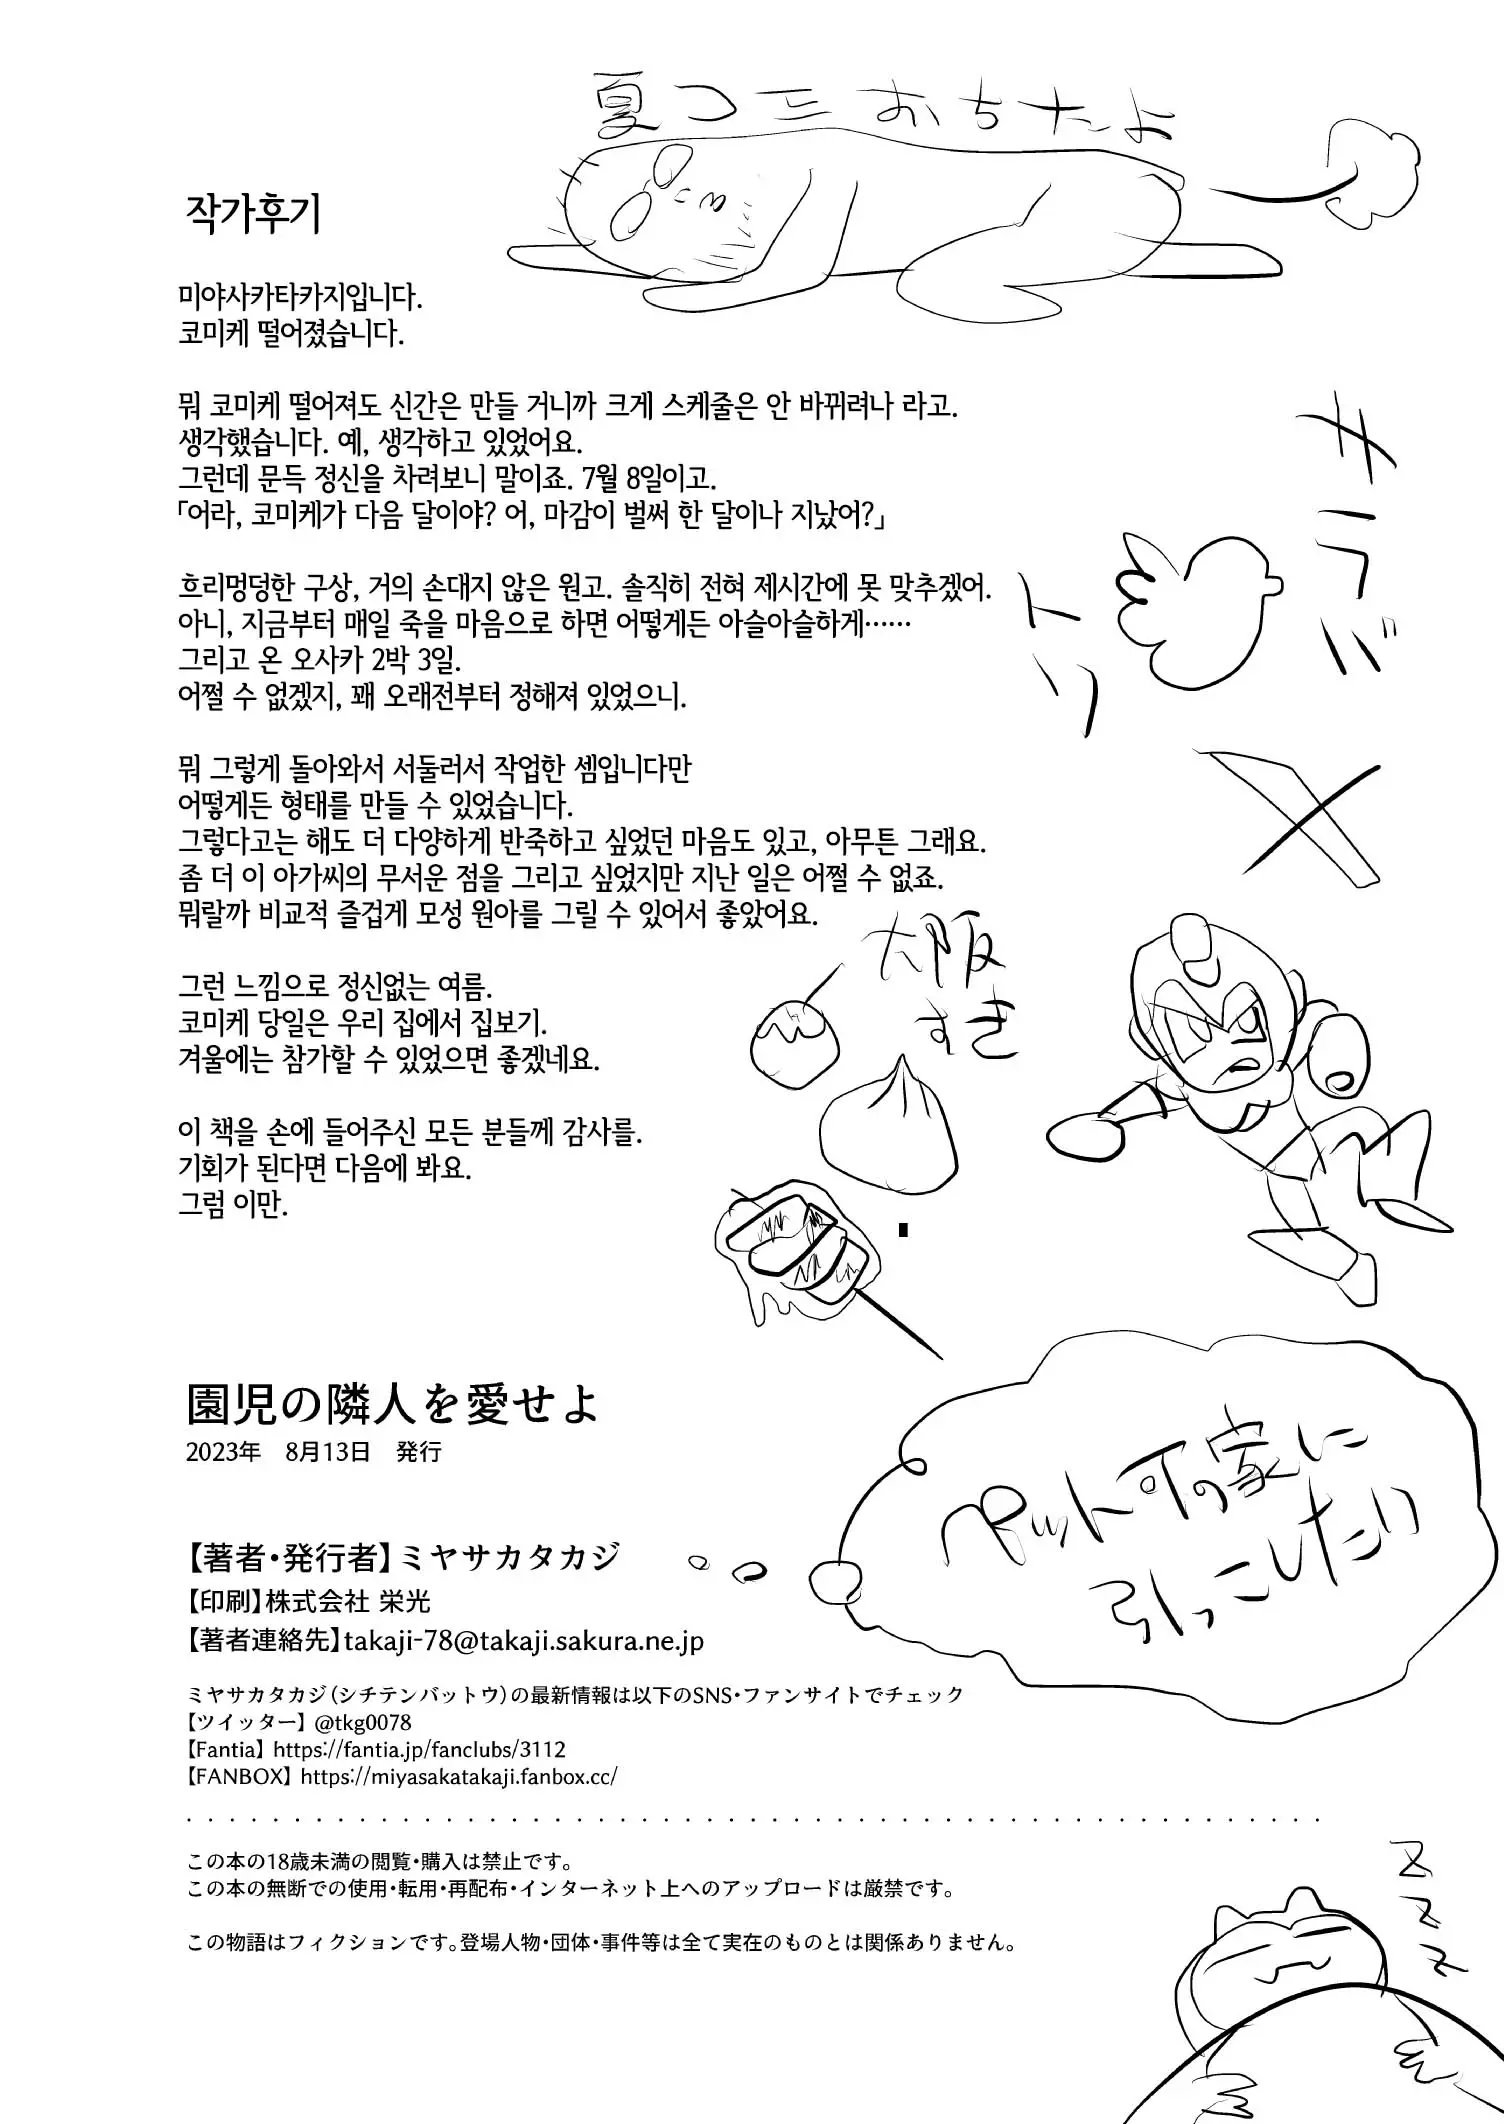 夏コミおちたよ
작가후기
미야사카타카지입니다.
코미케 떨어졌습니다.
뭐 코미케 떨어져도 신간은 만들 거니까 크게 스케줄은 안 바뀌려나 라고.
생각했습니다. 예, 생각하고 있었어요.
그런데 문득 정신을 차려보니 말이죠. 7월 8일이고.
「어라, 코미케가 다음 달이야? 어, 마감이 벌써 한 달이나 지났어?」
흐리멍덩한 구상, 거의 손대지 않은 원고. 솔직히 전혀 제시간에 못 맞추겠어.
아니, 지금부터 매일 죽을 마음으로 하면 어떻게든 아슬아슬하게……
그리고 온 오사카 2박 3일.
어쩔 수 없겠지, 꽤 오래전부터 정해져 있었으니.
뭐 그렇게 돌아와서 서둘러서 작업한 셈입니다만
어떻게든 형태를 만들 수 있었습니다.
그렇다고는 해도 더 다양하게 반죽하고 싶었던 마음도 있고, 아무튼 그래요.
좀 더 이 아가씨의 무서운 점을 그리고 싶었지만 지난 일은 어쩔 수 없죠.
뭐랄까 비교적 즐겁게 모성 원아를 그릴 수 있어서 좋았어요.
그런 느낌으로 정신없는 여름.
코미케 당일은 우리 집에서 집보기.
겨울에는 참가할 수 있었으면 좋겠네요.
이 책을 손에 들어주신 모든 분들께 감사를.
기회가 된다면 다음에 봐요.
그럼 이만.
サラバ
トリ
X
大阪
すき
ペットの家に
引っこしたい
園児の隣人を愛せよ
2023年　8月13日　発行
【著者・発行者】ミヤサカタカジ
【印刷】株式会社 栄光
【著者連絡先】takaji-78@takaji.sakura.ne.jp
ミヤサカタカジ（シチテンバットウ）の最新情報は以下のSNS・ファンサイトでチェック
【ツイッター】 @tkg0078
【Fantia】 https://fantia.jp/fanclubs/3112
【FANBOX】 https://miyasakatakaji.fanbox.cc/
この本の18歳未満の閲覧・購入は禁止です。
この本の無断での使用・転用・再配布・インターネット上へのアップロードは厳禁です。
この物語はフィクションです。登場人物・団体・事件等は全て実在のものとは関係ありません。
Z
Z
Z